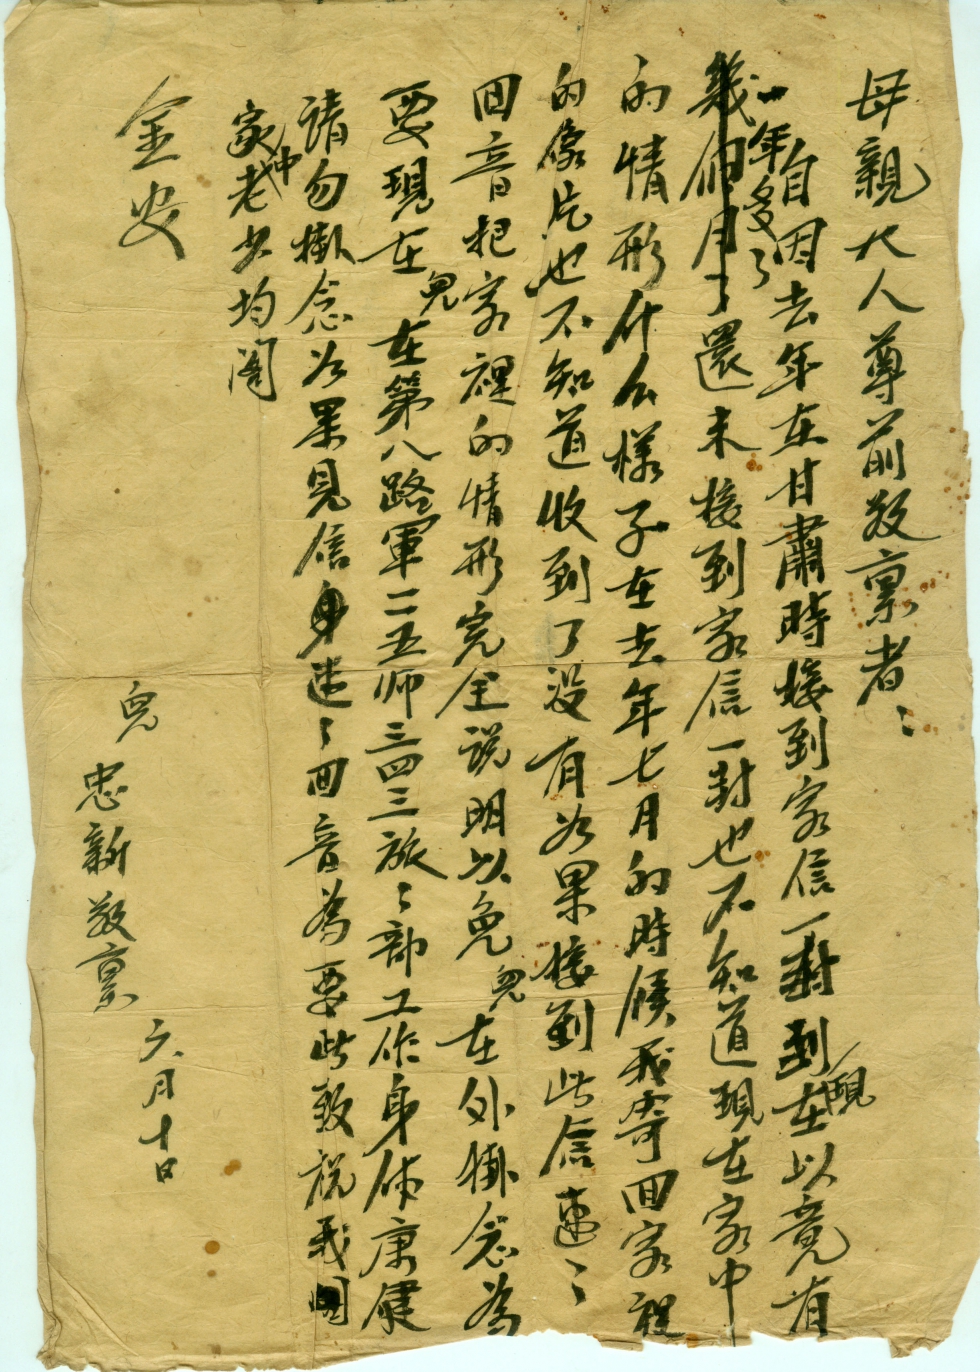 母親大人尊前敬禀者:
自因去年在甘肅時接到家信一對到現在以竟有
一年多了還未接到家信一對也不知道現在家中
的情形什么樣子在去年七月的時候我寄回家裡
的像片也不知道收到了没有如果接到此信速々
回音把家裡的情形完全説明以免兒在外掛念為
要現在兒在第八路軍一一五师三四三旅々部工作身体康健
請勿掛念如果見信身速々回音為要此致祝我
家中老少均阁
金安
兒 忠新敬禀
六月十日